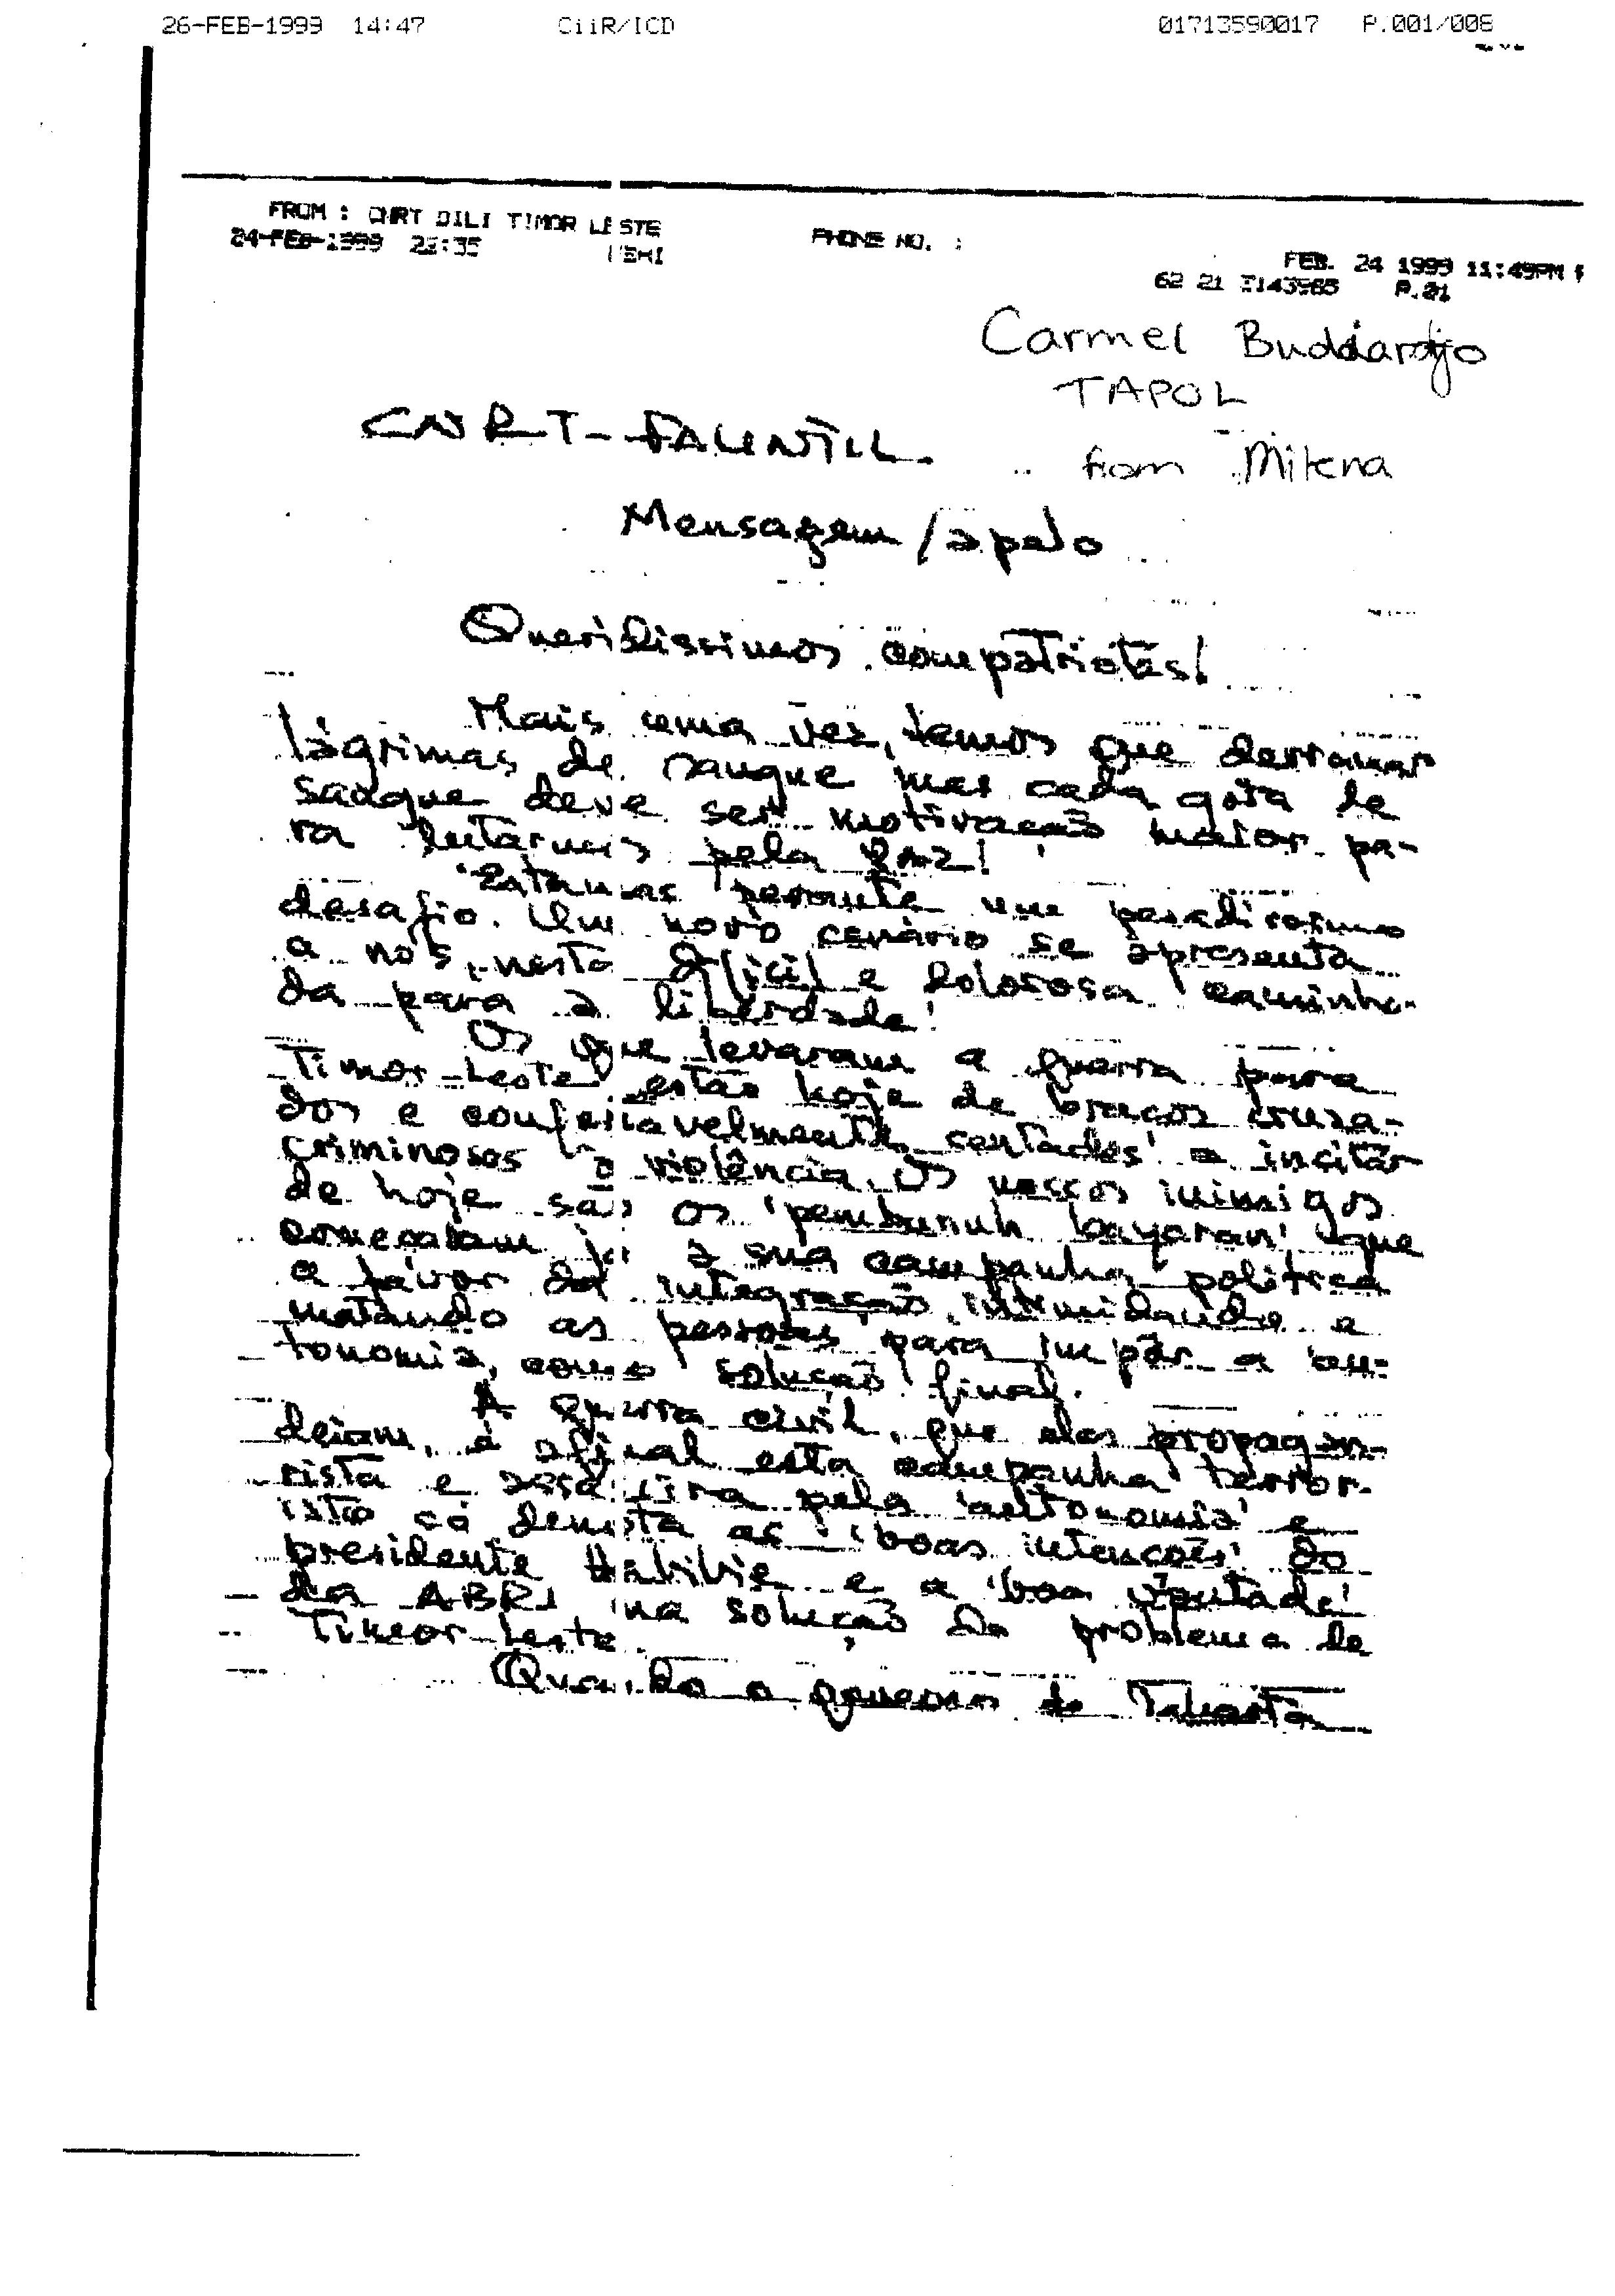 26-FEB-1999 14:47 CiiR/ICD 01713590017 P.001/008
FROM : CNRT DILI TIMOR LESTE PHONE NO. :
24-FEB-1999 22:35
FEB. 24 1999 11:49PM
62 21 P.01
Carmel Budiardjo
TAPOL
CNRT-FALINTIL
from Milena
Mensagem/apelo
Queridissimos compatriotas!
Mais uma vez, temos que derramar
lágrimas de sangue mas cada gota de
sangue deve ser motivação maior pa-
ra lutarmos pela Paz!
Estamos perante um pesadissimo
desafio. Um novo cenário se apresenta
a nós, nesta dificil e dolorosa caminha-
da para a liberdade!
Os que levaram a guerra para
Timor-Leste estão hoje de braços cruza-
dos e confortavelmente sentados a incitar
criminosos à violência. Os nossos inimigos
de hoje são os 'pembunuh bayaran' que
começaram já a sua campanha politica
a favor da integração, intimidando e
matando as pessoas para impôr a au-
tonomia, como solução final.
A guerra civil, que eles propagan-
deiam, é afinal esta campanha terror-
rista e assassina pela 'autonomia' e
isto só denota as 'boas intenções' do
presidente Habibie e a 'boa vontade'
da ABRI na solução do problema de
Timor-Leste.
Quando o governo de Jakarta